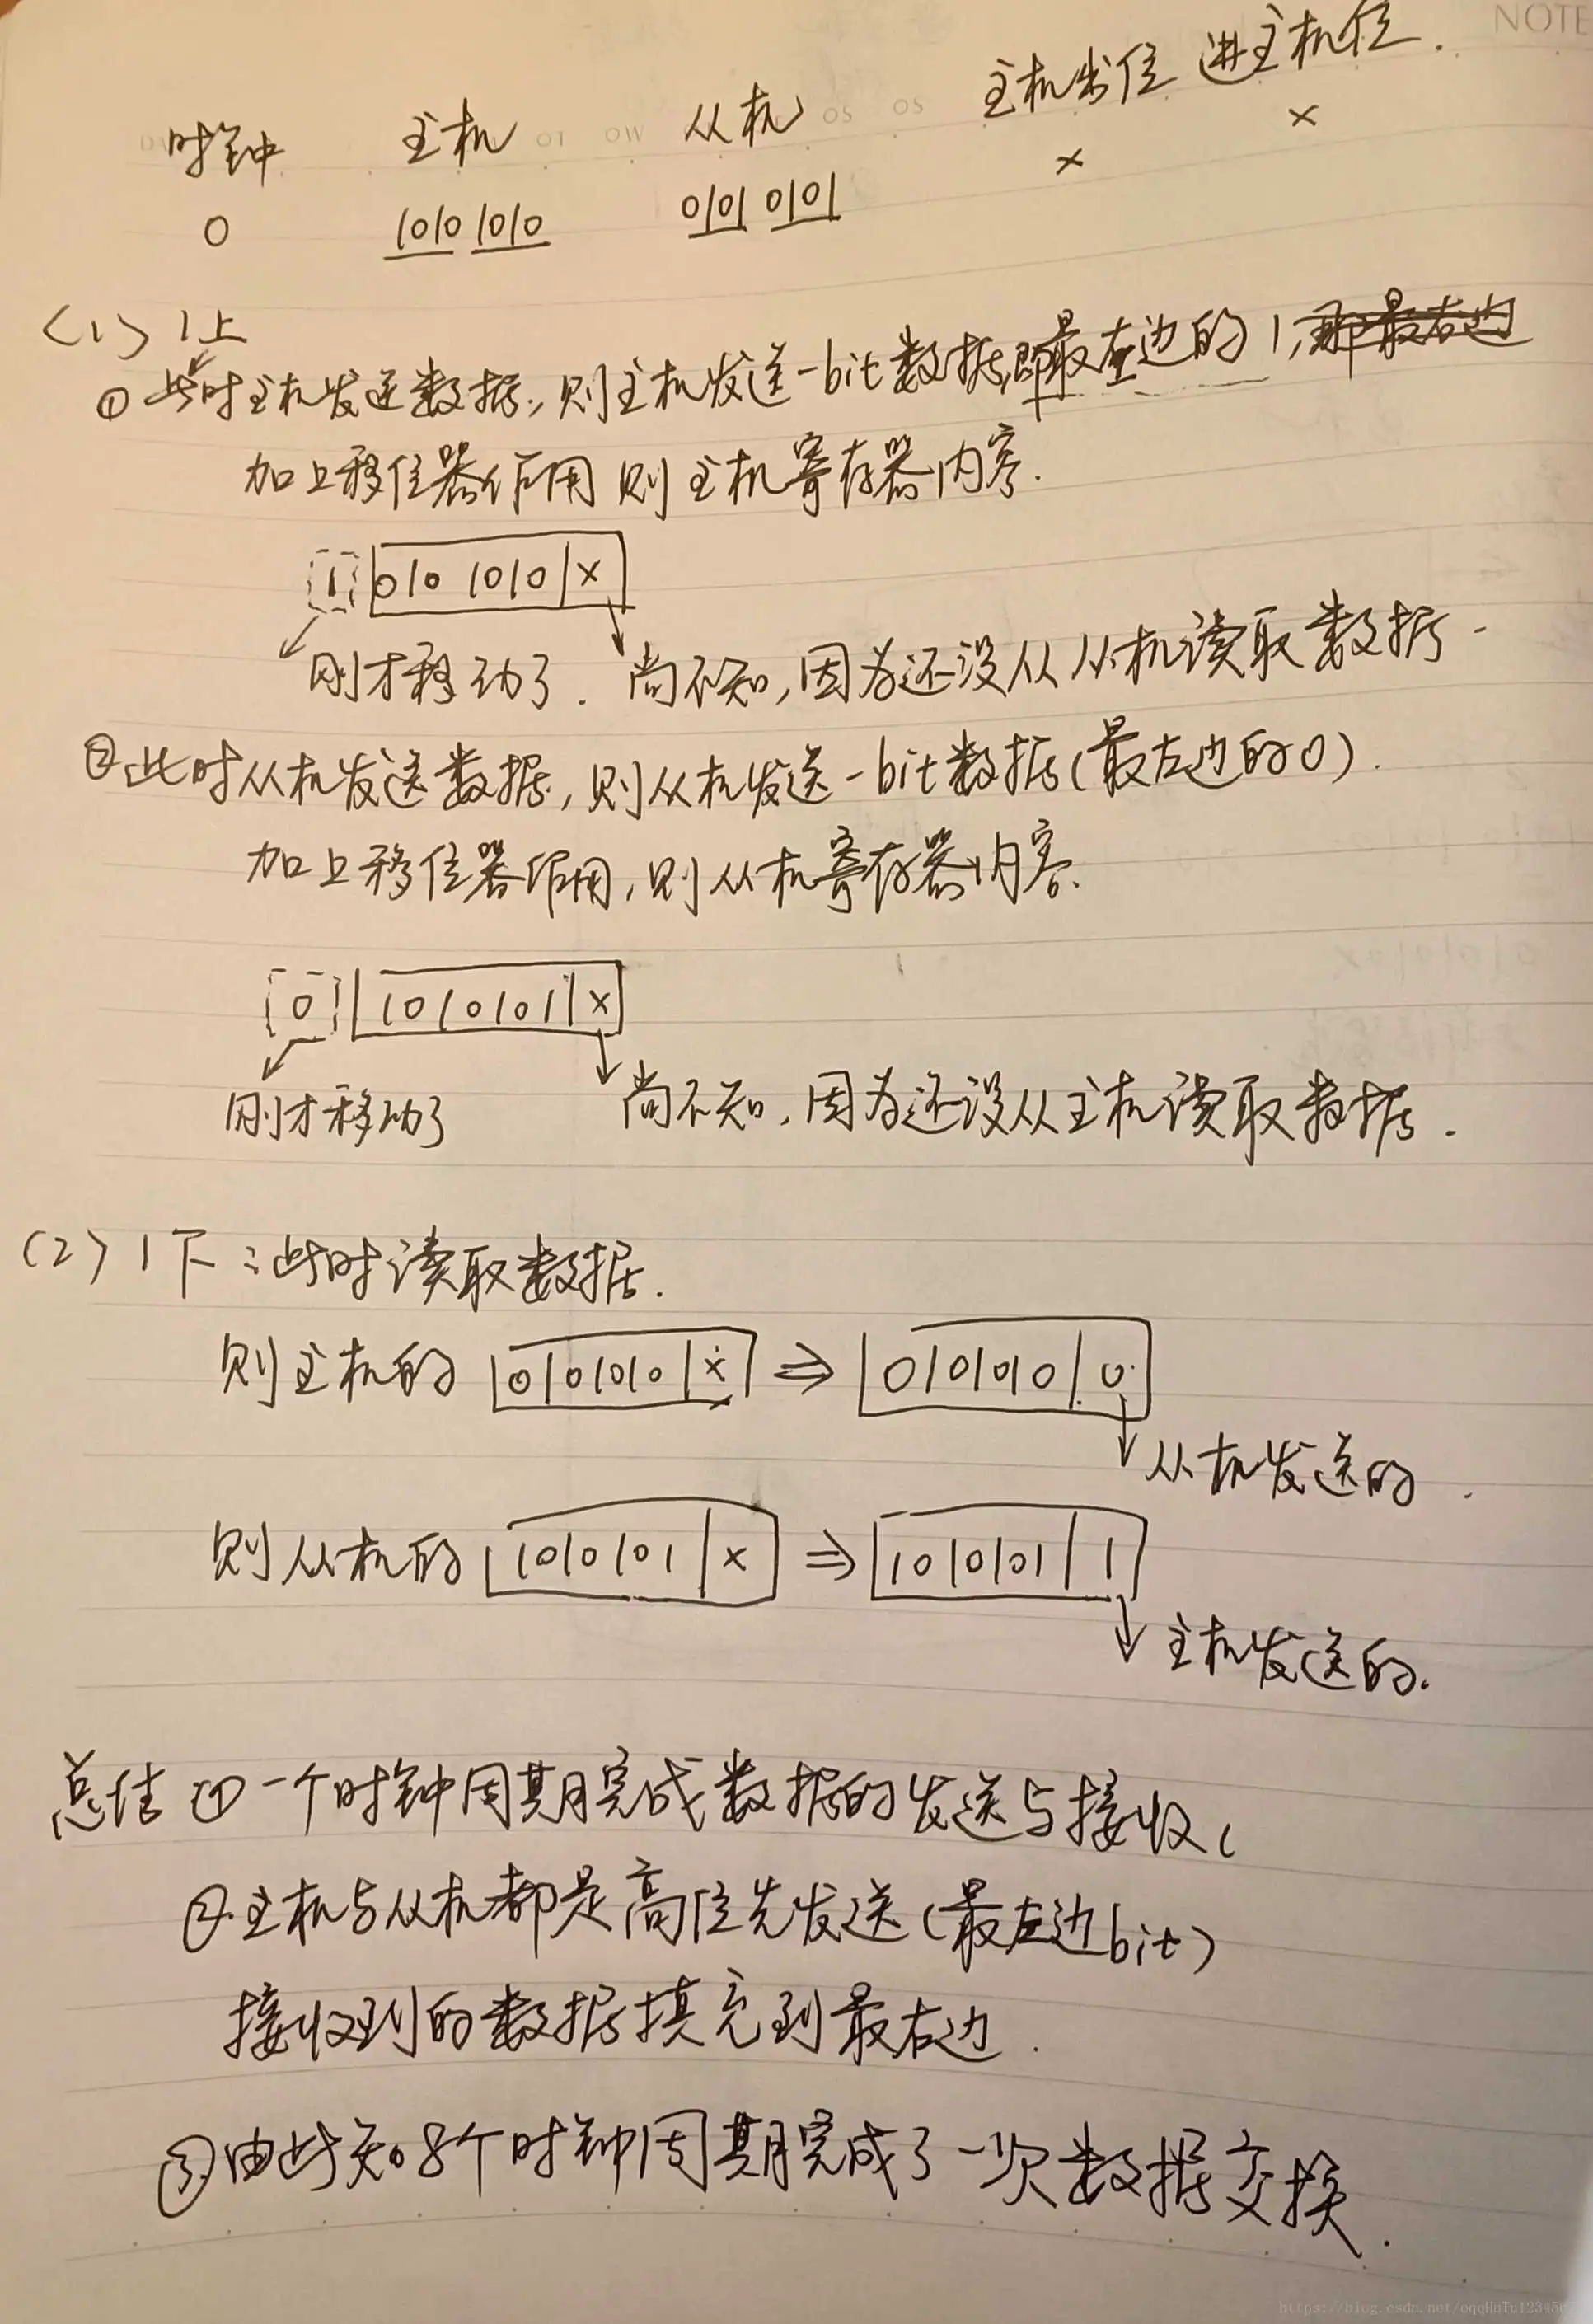 NOTE
时钟 主机 从机 主机出位 进主机位.
0 1010 1010 0101 0101 x x
(1) 1上
① 此时主机发送数据,则主机发送一bit数据,即最左边的1,
加上移位器作用则主机寄存器内容.
1 010 1010 x
刚才移动了. 尚不知,因为还没从从机读取数据.
②此时从机发送数据,则从机发送一bit数据(最左边的0).
加上移位器作用,则从机寄存器内容.
0 1010101 x
刚才移动了 尚不知,因为还没从主机读取数据.
(2) 1下:此时读取数据.
则主机的 0101010 x ⇒ 0101010 0
从机发送的.
则从机的 1010101 x ⇒ 1010101 1
主机发送的.
总结 ① 一个时钟周期完成数据的发送与接收
②主机与从机都是高位先发送(最左边bit)
接收到的数据填充到最右边.
③由此知8个时钟周期完成了一次数据交换.